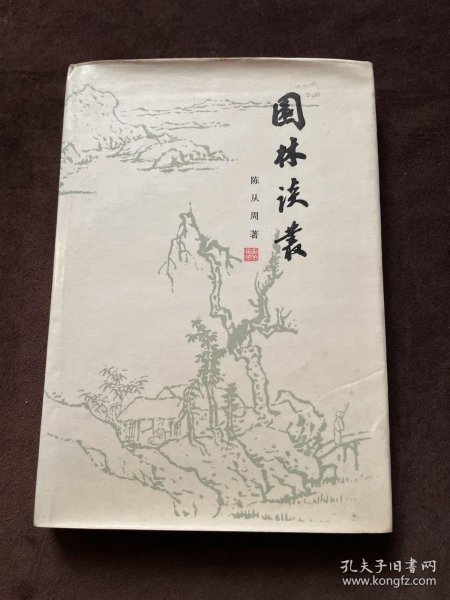 园林谈丛
陈从周著
孔夫子旧书网
www.kongfz.com